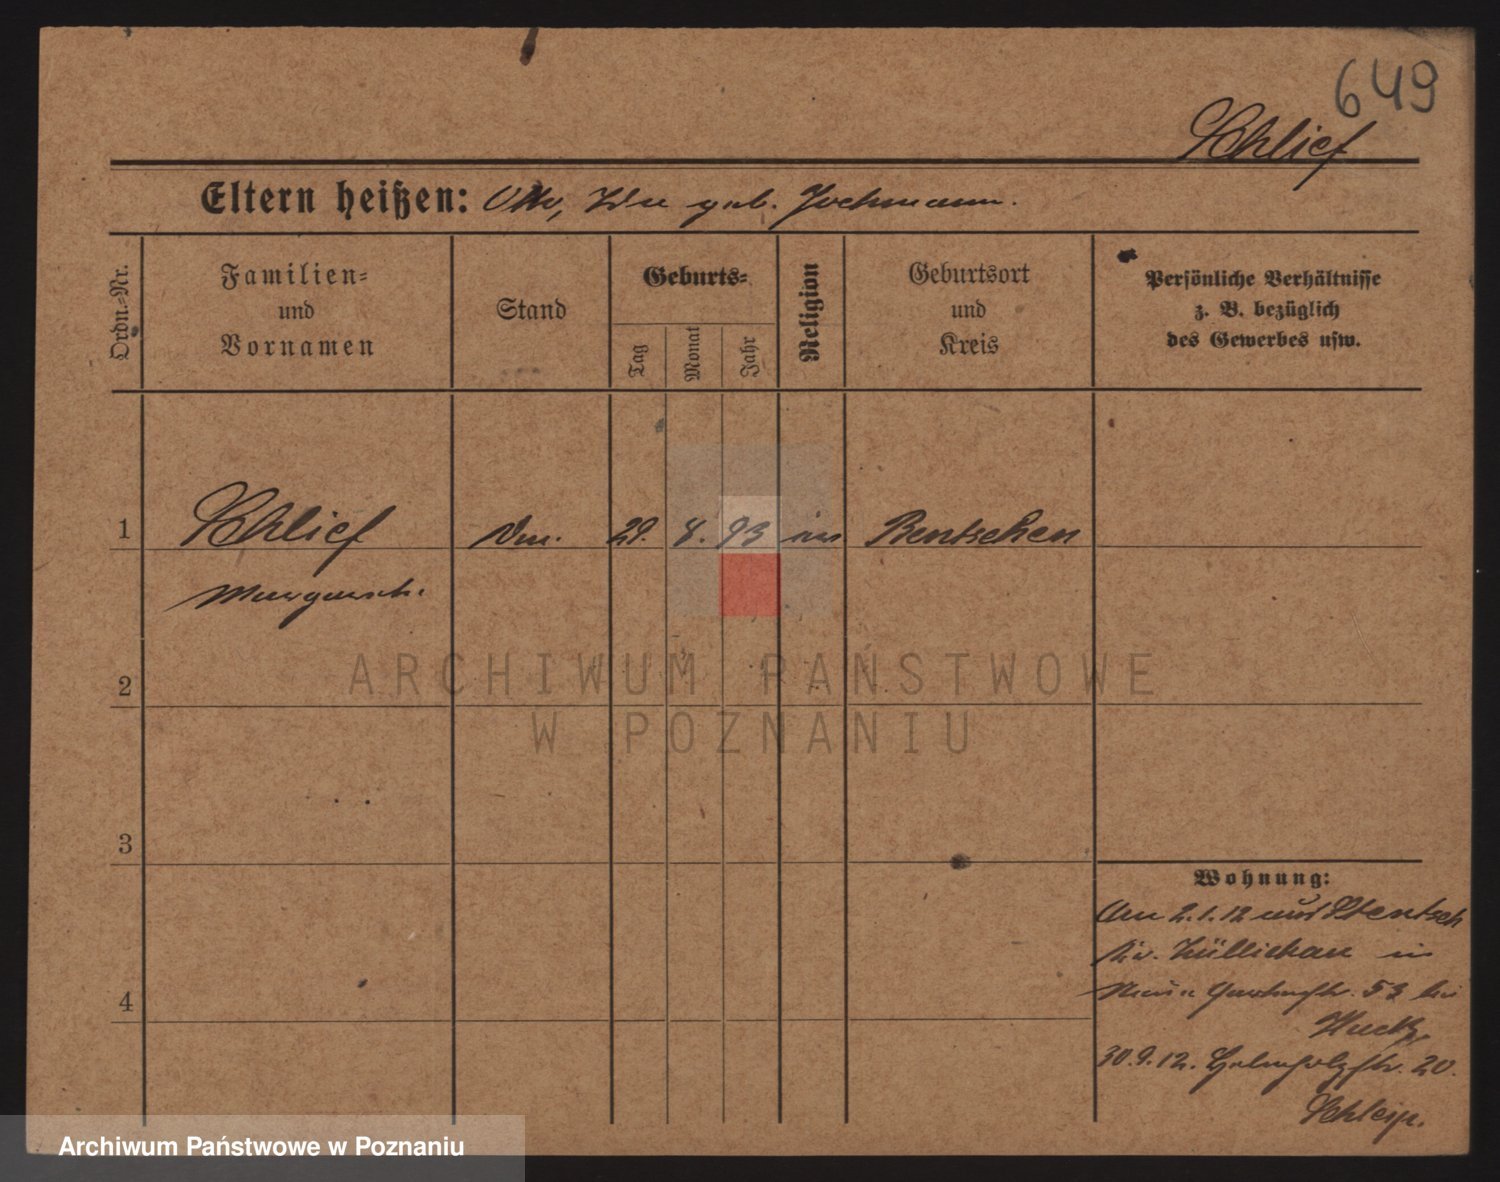 649
Schlief
Eltern heißen: Otto, Ida geb. Jochmann.
Ordn.=Nr.
Familien=
und
Vornamen
Stand
Geburts=
Tag
Monat
Jahr
Religion
Geburtsort
und
Kreis
Persönliche Verhältnisse
z. B. bezüglich
des Gewerbes usw.
1
Schlief 29. 8. 93 Bentschen
Margareth.
2
ARCHIWUM PAŃSTWOWE
W POZNANIU
3
4
Wohnung:
Am 2.1.12 aus Stentsch
Kr. Züllichau in
Gartenstr. 53 bei
30.9.12. Helmholzstr. 20.
Archiwum Państwowe w Poznaniu